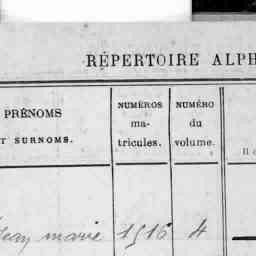 RÉPERTOIRE ALPH
PRÉNOMS
T SURNOMS.
NUMÉROS
ma-
tricules.
NUMÉRO
du
volume.
Il e
Jean marie 1516 4